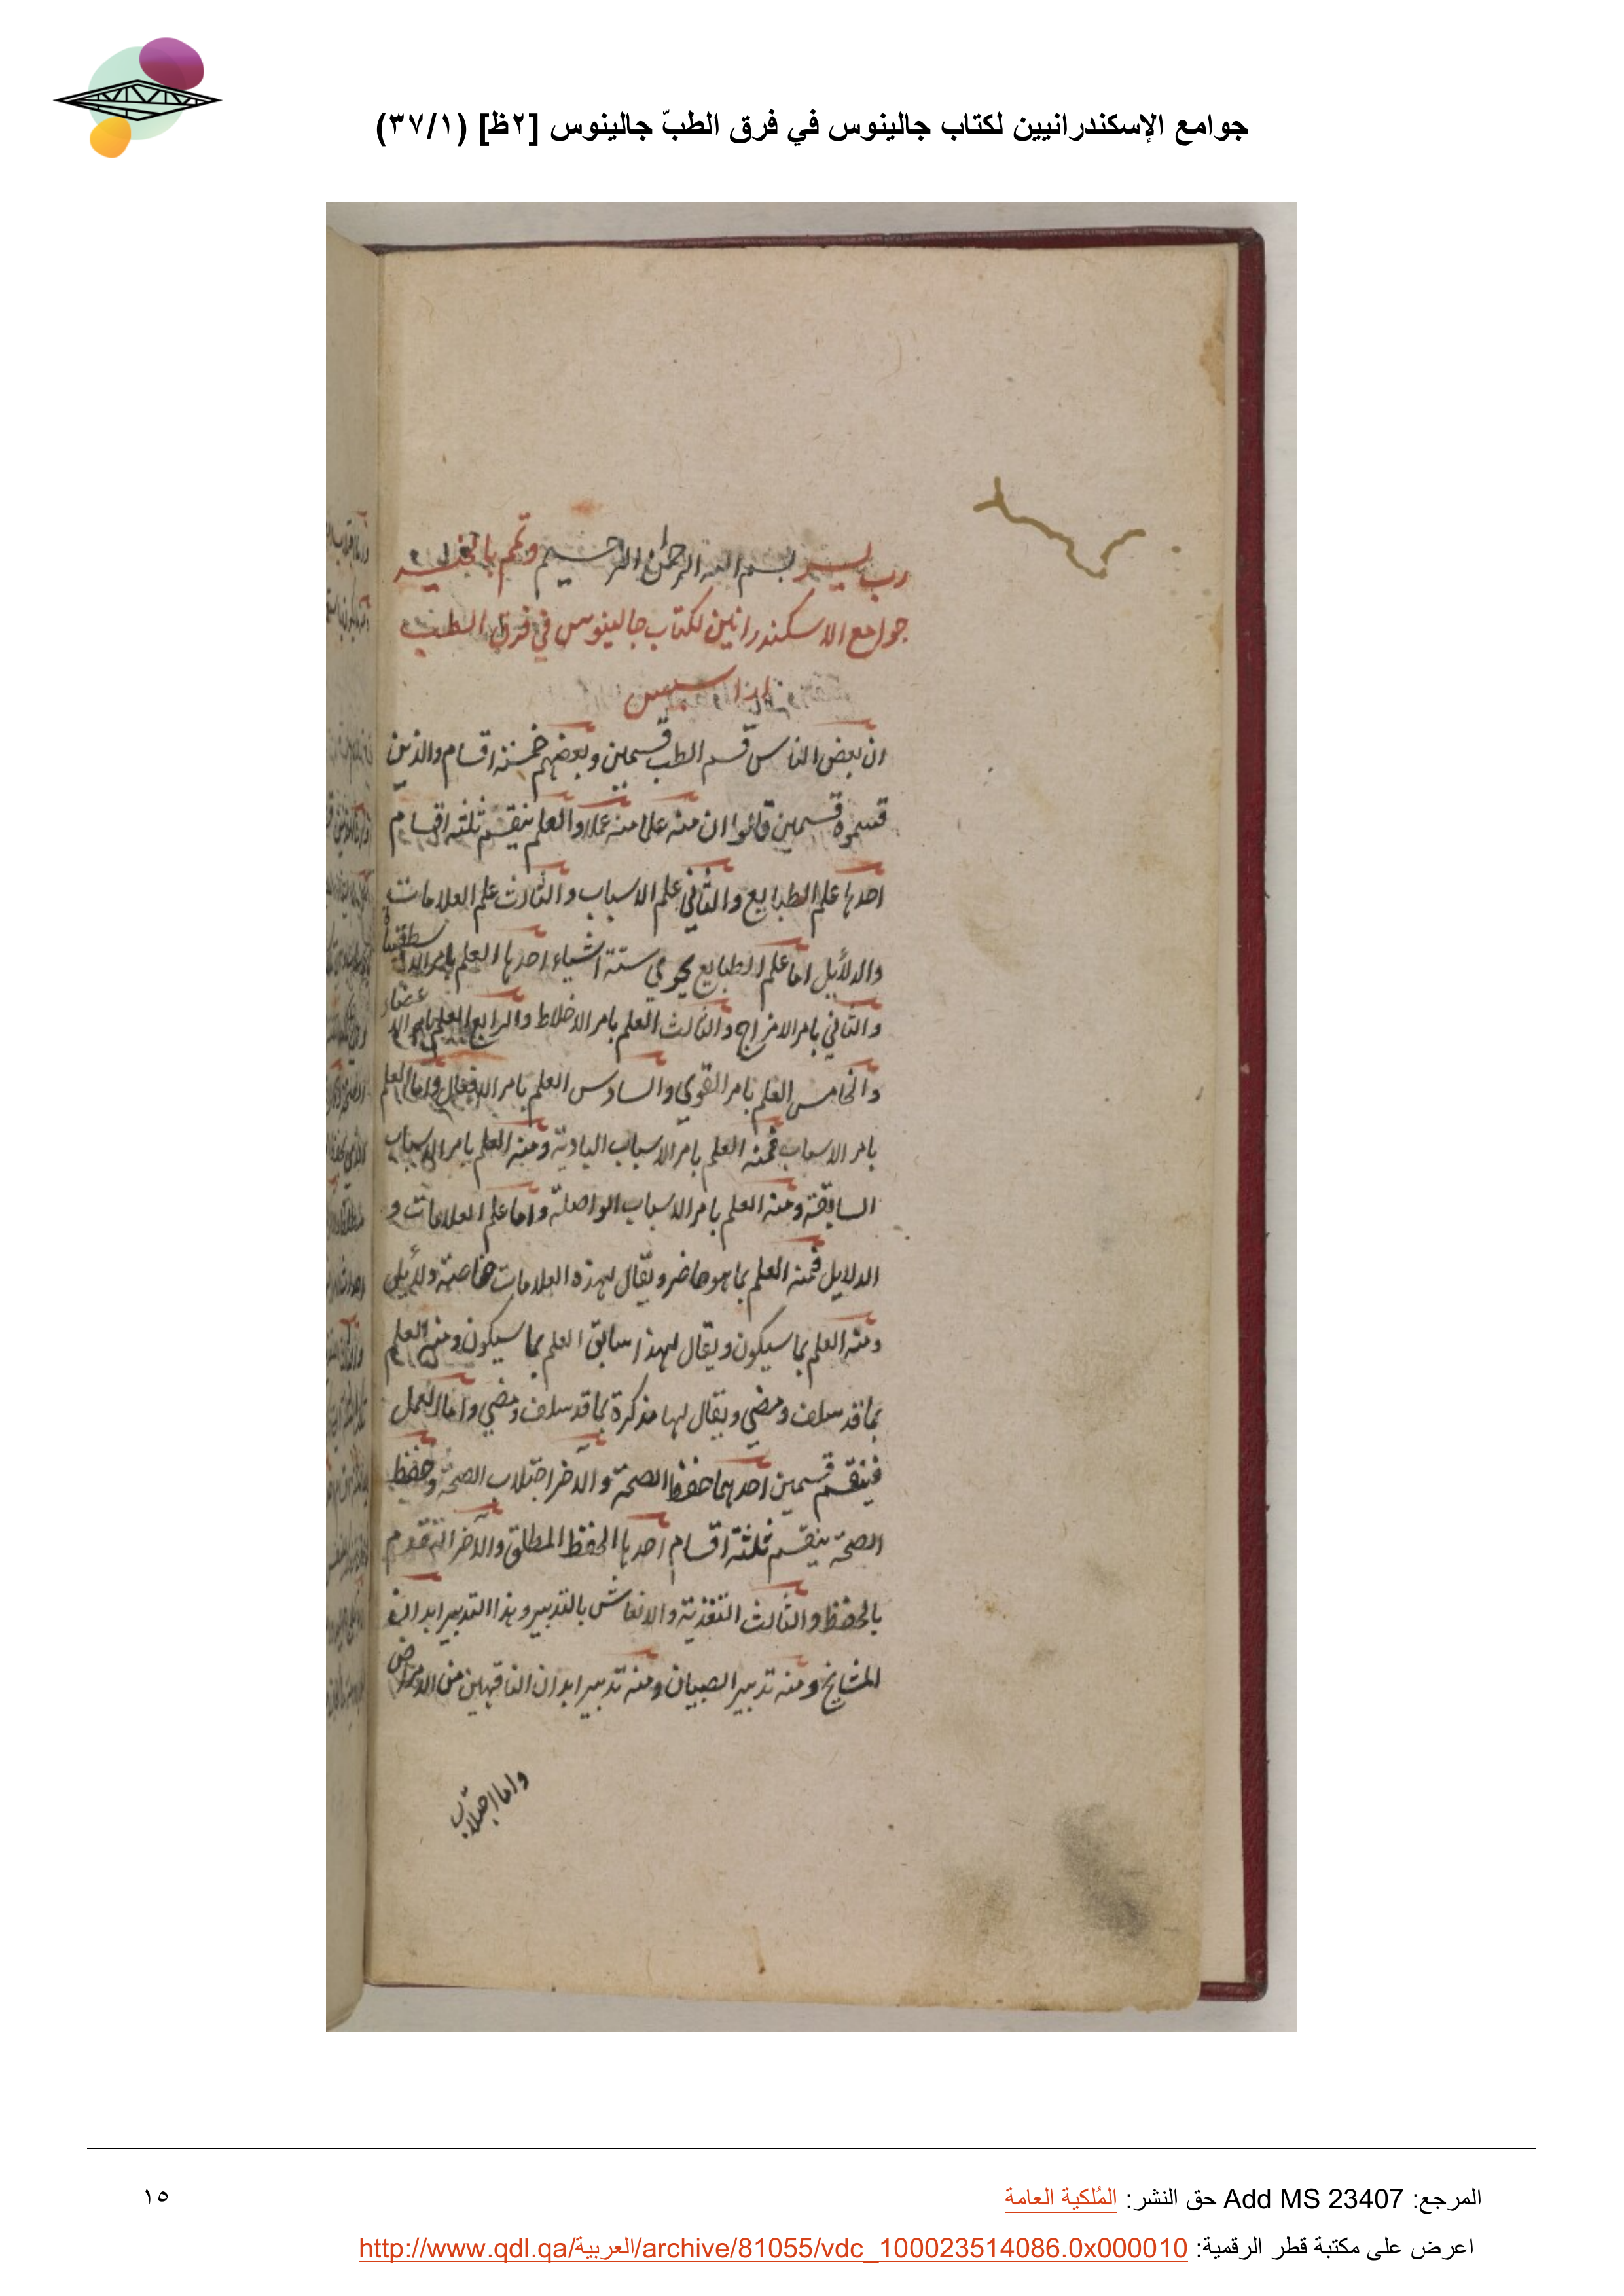 جوامع الإسكندرانيين لكتاب جالينوس في فرق الطبّ جالينوس [٢ظ] (٣٧/١)
رب يسر بسم الله الرحمن الرحيم وتمم بالخير
جوامع الاسكندرانين لكتاب جالينوس في فرق الطب
ان بعض الناس قسم الطب قسمين وبعضهم خمسة اقسام والذين
قسموه قسمين قالوا ان منه علما منه عملا والعلم ينقسم ثلثة اقسام
احدها علم الطبايع والثاني علم الاسباب والثالث علم العلامات
والدلأيل اما علم الطبايع يحوي ستة اشياء احدها العلم بامر الاسطقسات
والثاني بامر الامزاج والثالث العلم بامر الاخلاط والرابع العلم بامر الاعضاء
والخامس العلم بامر القوي والسادس العلم بامر الافعال واما العلم
بامر الاسباب فمنه العلم بامر الاسباب البادية ومنه العلم بامر الاسباب
السابقة ومنه العلم بامر الاسباب الواصلة واما علم العلامات و
الدلايل فمنه العلم بما هو حاضر ويقال لهذه العلامات خاصة دلأيل
ومنه العلم بما سيكون ويقال لهذا سابق العلم بما سيكون ومنه العلم
بما قد سلف ومضي ويقال لها مذكرة بما قد سلف ومضي واما العمل
فينقسم قسمين احدهما حفظ الصحة والآخر اجتلاب الصحة وحفظ
الصحة ينقسم ثلثة اقسام احدها الحفظ المطلق والآخر التقدم
بالحفظ والثالث التغذية والانعاش بالتدبير وهذا التدبير ابدان
المشايخ ومنه تدبير الصبيان ومنه تدبير ابدان الناقهين من الامراض
واما اجتلاب
المرجع: Add MS 23407 حق النشر: المُلكية العامة
١٥
اعرض على مكتبة قطر الرقمية: http://www.qdl.qa/العربية/archive/81055/vdc_100023514086.0x000010